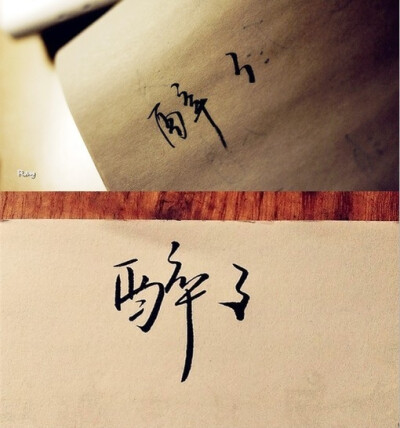 醉了
Ray
醉了